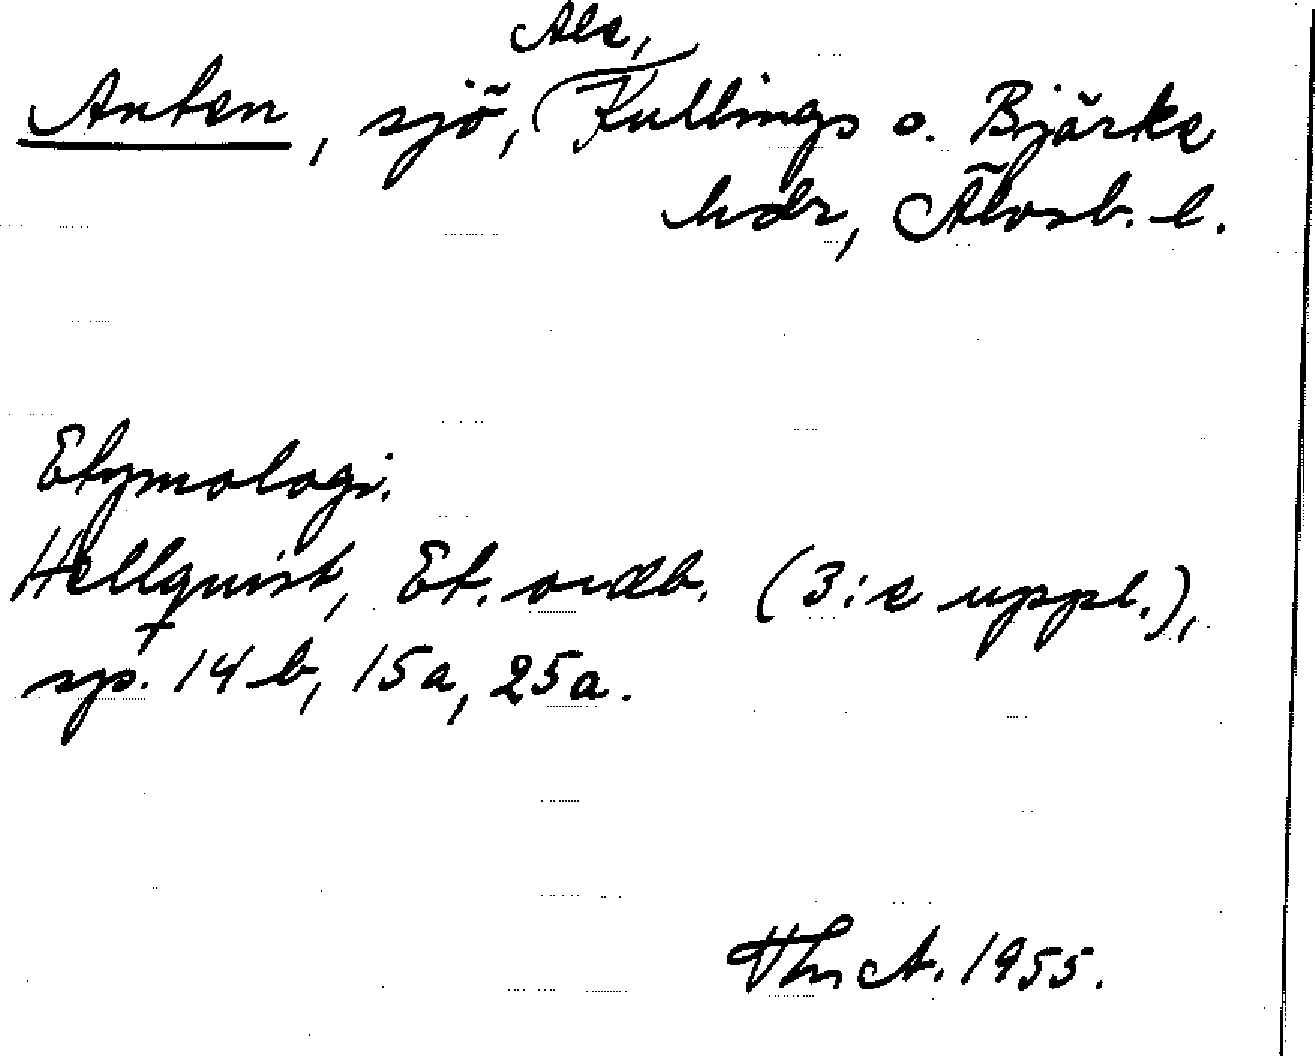 Ale,
Anten, sjö, Kullings o. Bjärke
hdr, Älvsb. l.
Etymologi.
Hellquist, Et. ordb. (3:e uppl.),
sp. 14 b, 15a, 25a.
Th A. 1955.